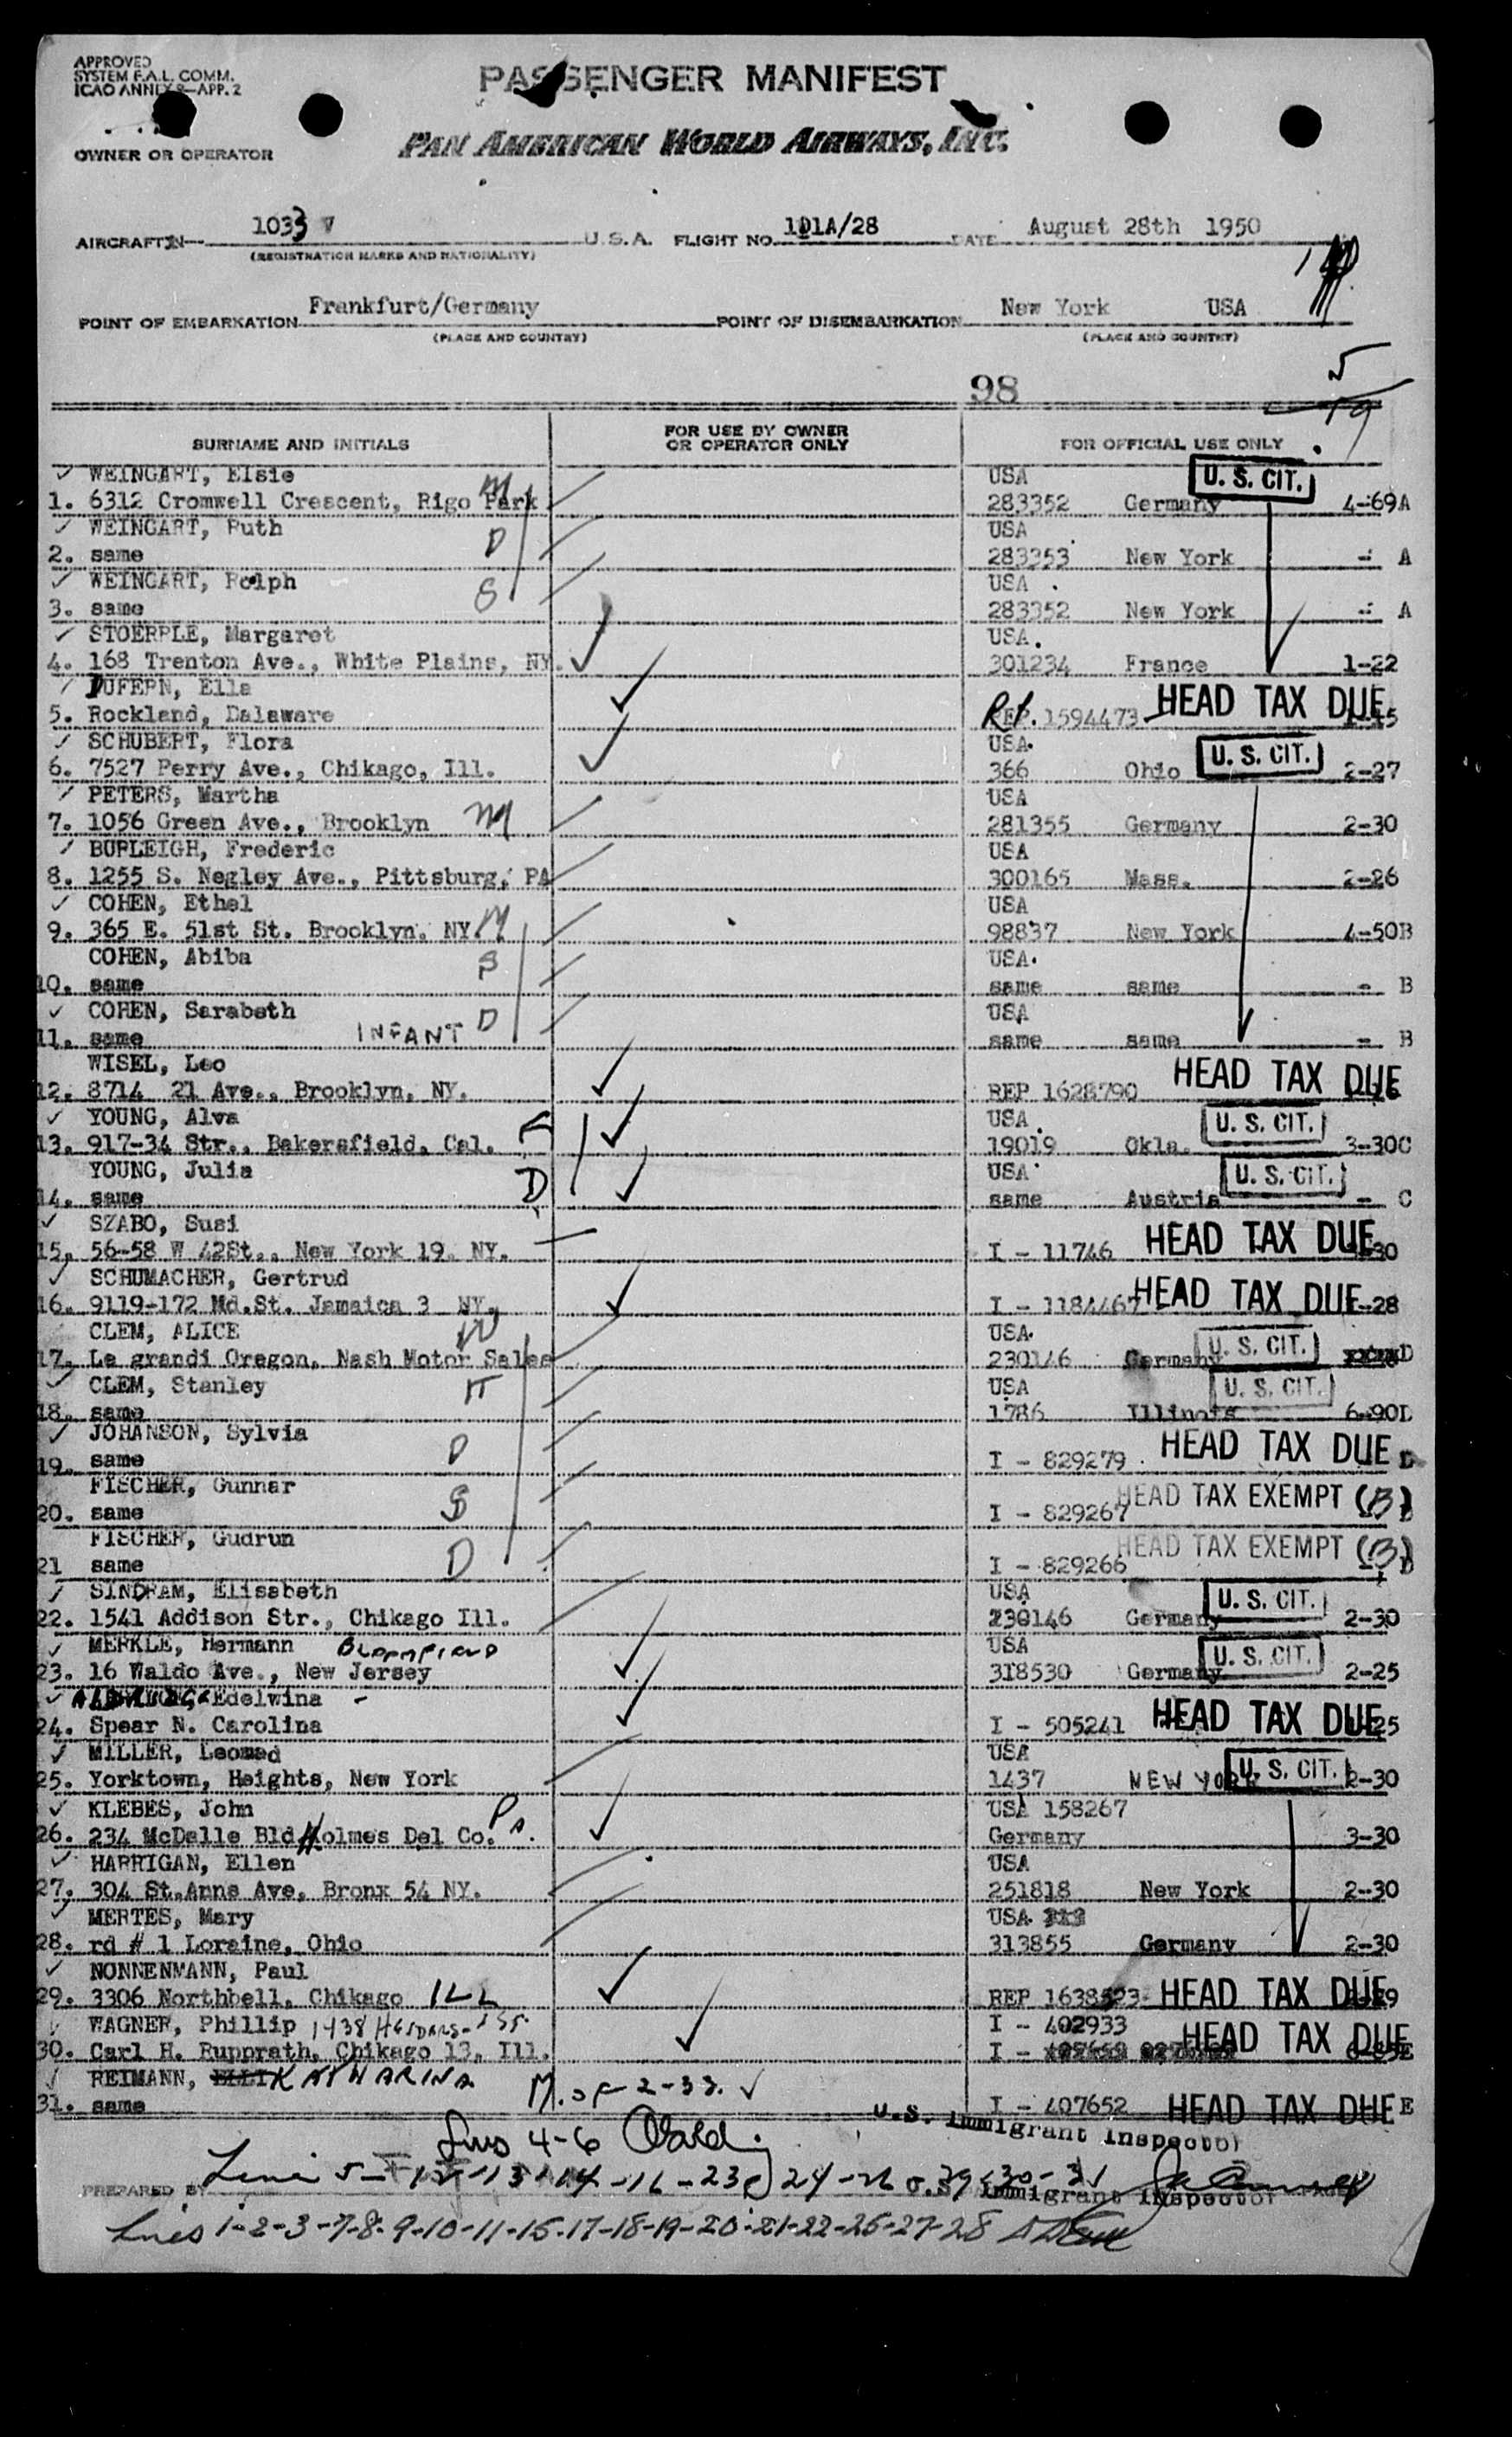 APPROVED
SYSTEM F.A.L. COMM.
ICAO ANNEX 9—APP. 2
PASSENGER MANIFEST
OWNER OR OPERATOR
PAN AMERICAN WORLD AIRWAYS, INC.
AIRCRAFT N— 1033 V U.S.A. FLIGHT NO. 101A/28 DATE August 28th 1950
(REGISTRATION MARKS AND NATIONALITY)
POINT OF EMBARKATION Frankfurt/Germany POINT OF DISEMBARKATION New York USA
(PLACE AND COUNTRY) (PLACE AND COUNTRY)
98 5/19
SURNAME AND INITIALS FOR USE BY OWNER OR OPERATOR ONLY FOR OFFICIAL USE ONLY
WEINGART, Elsie USA U. S. CIT.
1. 6312 Cromwell Crescent, Rigo Park M 283352 Germany 4-69A
WEINGART, Ruth USA
2. same D 283353 New York - A
WEINGART, Ralph USA
3. same S 283352 New York - A
STOERPLE, Margaret USA.
4. 168 Trenton Ave., White Plains, NY. 301234 France 1-22
DUFERN, Ella HEAD TAX DUE
5. Rockland, Dalaware REP. 1594473
SCHUBERT, Flora USA. U. S. CIT.
6. 7527 Perry Ave., Chikago, Ill. 366 Ohio 2-27
PETERS, Martha USA
7. 1056 Green Ave., Brooklyn M 281355 Germany 2-30
BURLEIGH, Frederic USA
8. 1255 S. Negley Ave., Pittsburg, PA 300165 Mass. 2-26
COHEN, Ethel USA
9. 365 E. 51st St. Brooklyn, NY. M 98837 New York 4-50B
COHEN, Abiba S USA.
10. same same same - B
COHEN, Sarabeth D USA
11. same INFANT same same - B
WISEL, Leo HEAD TAX DUE
12. 8714 21 Ave., Brooklyn, NY. REP 1628790
YOUNG, Alva F USA. U. S. CIT.
13. 917-34 Str., Bakersfield, Cal. 19019 Okla. 3-30C
YOUNG, Julia D USA U. S. CIT.
14. same same Austria - C
SZABO, Susi HEAD TAX DUE
15. 56-58 W 42St., New York 19, NY. I - 11746
SCHUMACHER, Gertrud HEAD TAX DUE
16. 9119-172 Md.St. Jamaica 3 NY. I - 1184467 -28
CLEM, ALICE W USA. U. S. CIT.
17. Le grandi Oregon, Nash Motor Sales 230146 Germany D
CLEM, Stanley USA U. S. CIT.
18. same 1786 Illinois 6-90D
JOHANSON, Sylvia HEAD TAX DUE
19. same D I - 829279 D
FISCHER, Gunnar HEAD TAX EXEMPT (B)
20. same S I - 829267
FISCHER, Gudrun HEAD TAX EXEMPT (B)
21 same D I - 829266
SINDRAM, Elisabeth USA U. S. CIT.
22. 1541 Addison Str., Chikago Ill. 230146 Germany 2-30
MERKLE, Hermann Bloomfield USA U. S. CIT.
23. 16 Waldo Ave., New Jersey 318530 Germany 2-25
Edelwina HEAD TAX DUE
24. Spear N. Carolina I - 505241 25
MILLER, Leomad USA U. S. CIT.
25. Yorktown, Heights, New York 1437 NEW YORK 2-30
KLEBES, John Pa. USA 158267
26. 234 McDalle Bld Holmes Del Co. Germany 3-30
HARRIGAN, Ellen USA
27. 304 St.Anns Ave, Bronx 54 NY. 251818 New York 2-30
MERTES, Mary USA
28. rd # 1 Loraine, Ohio 313855 Germany 2-30
NONNENMANN, Paul HEAD TAX DUE
29. 3306 Northbell, Chikago ILL REP 1638523
WAGNER, Phillip 1438 I - 402933 HEAD TAX DUE
30. Carl H. Rupprath, Chikago 13, Ill. I -
REIMANN, KATHARINA M. OF 2-33.
31. same I - 407652 HEAD TAX DUE E
U.S. Immigrant Inspector
Lins 4-6
Line 5-12-13-14-16-23 24-26 29-30-31
PREPARED BY Immigrant Inspector
Lines 1-2-3-7-8-9-10-11-15-17-18-19-20-21-22-25-27-28